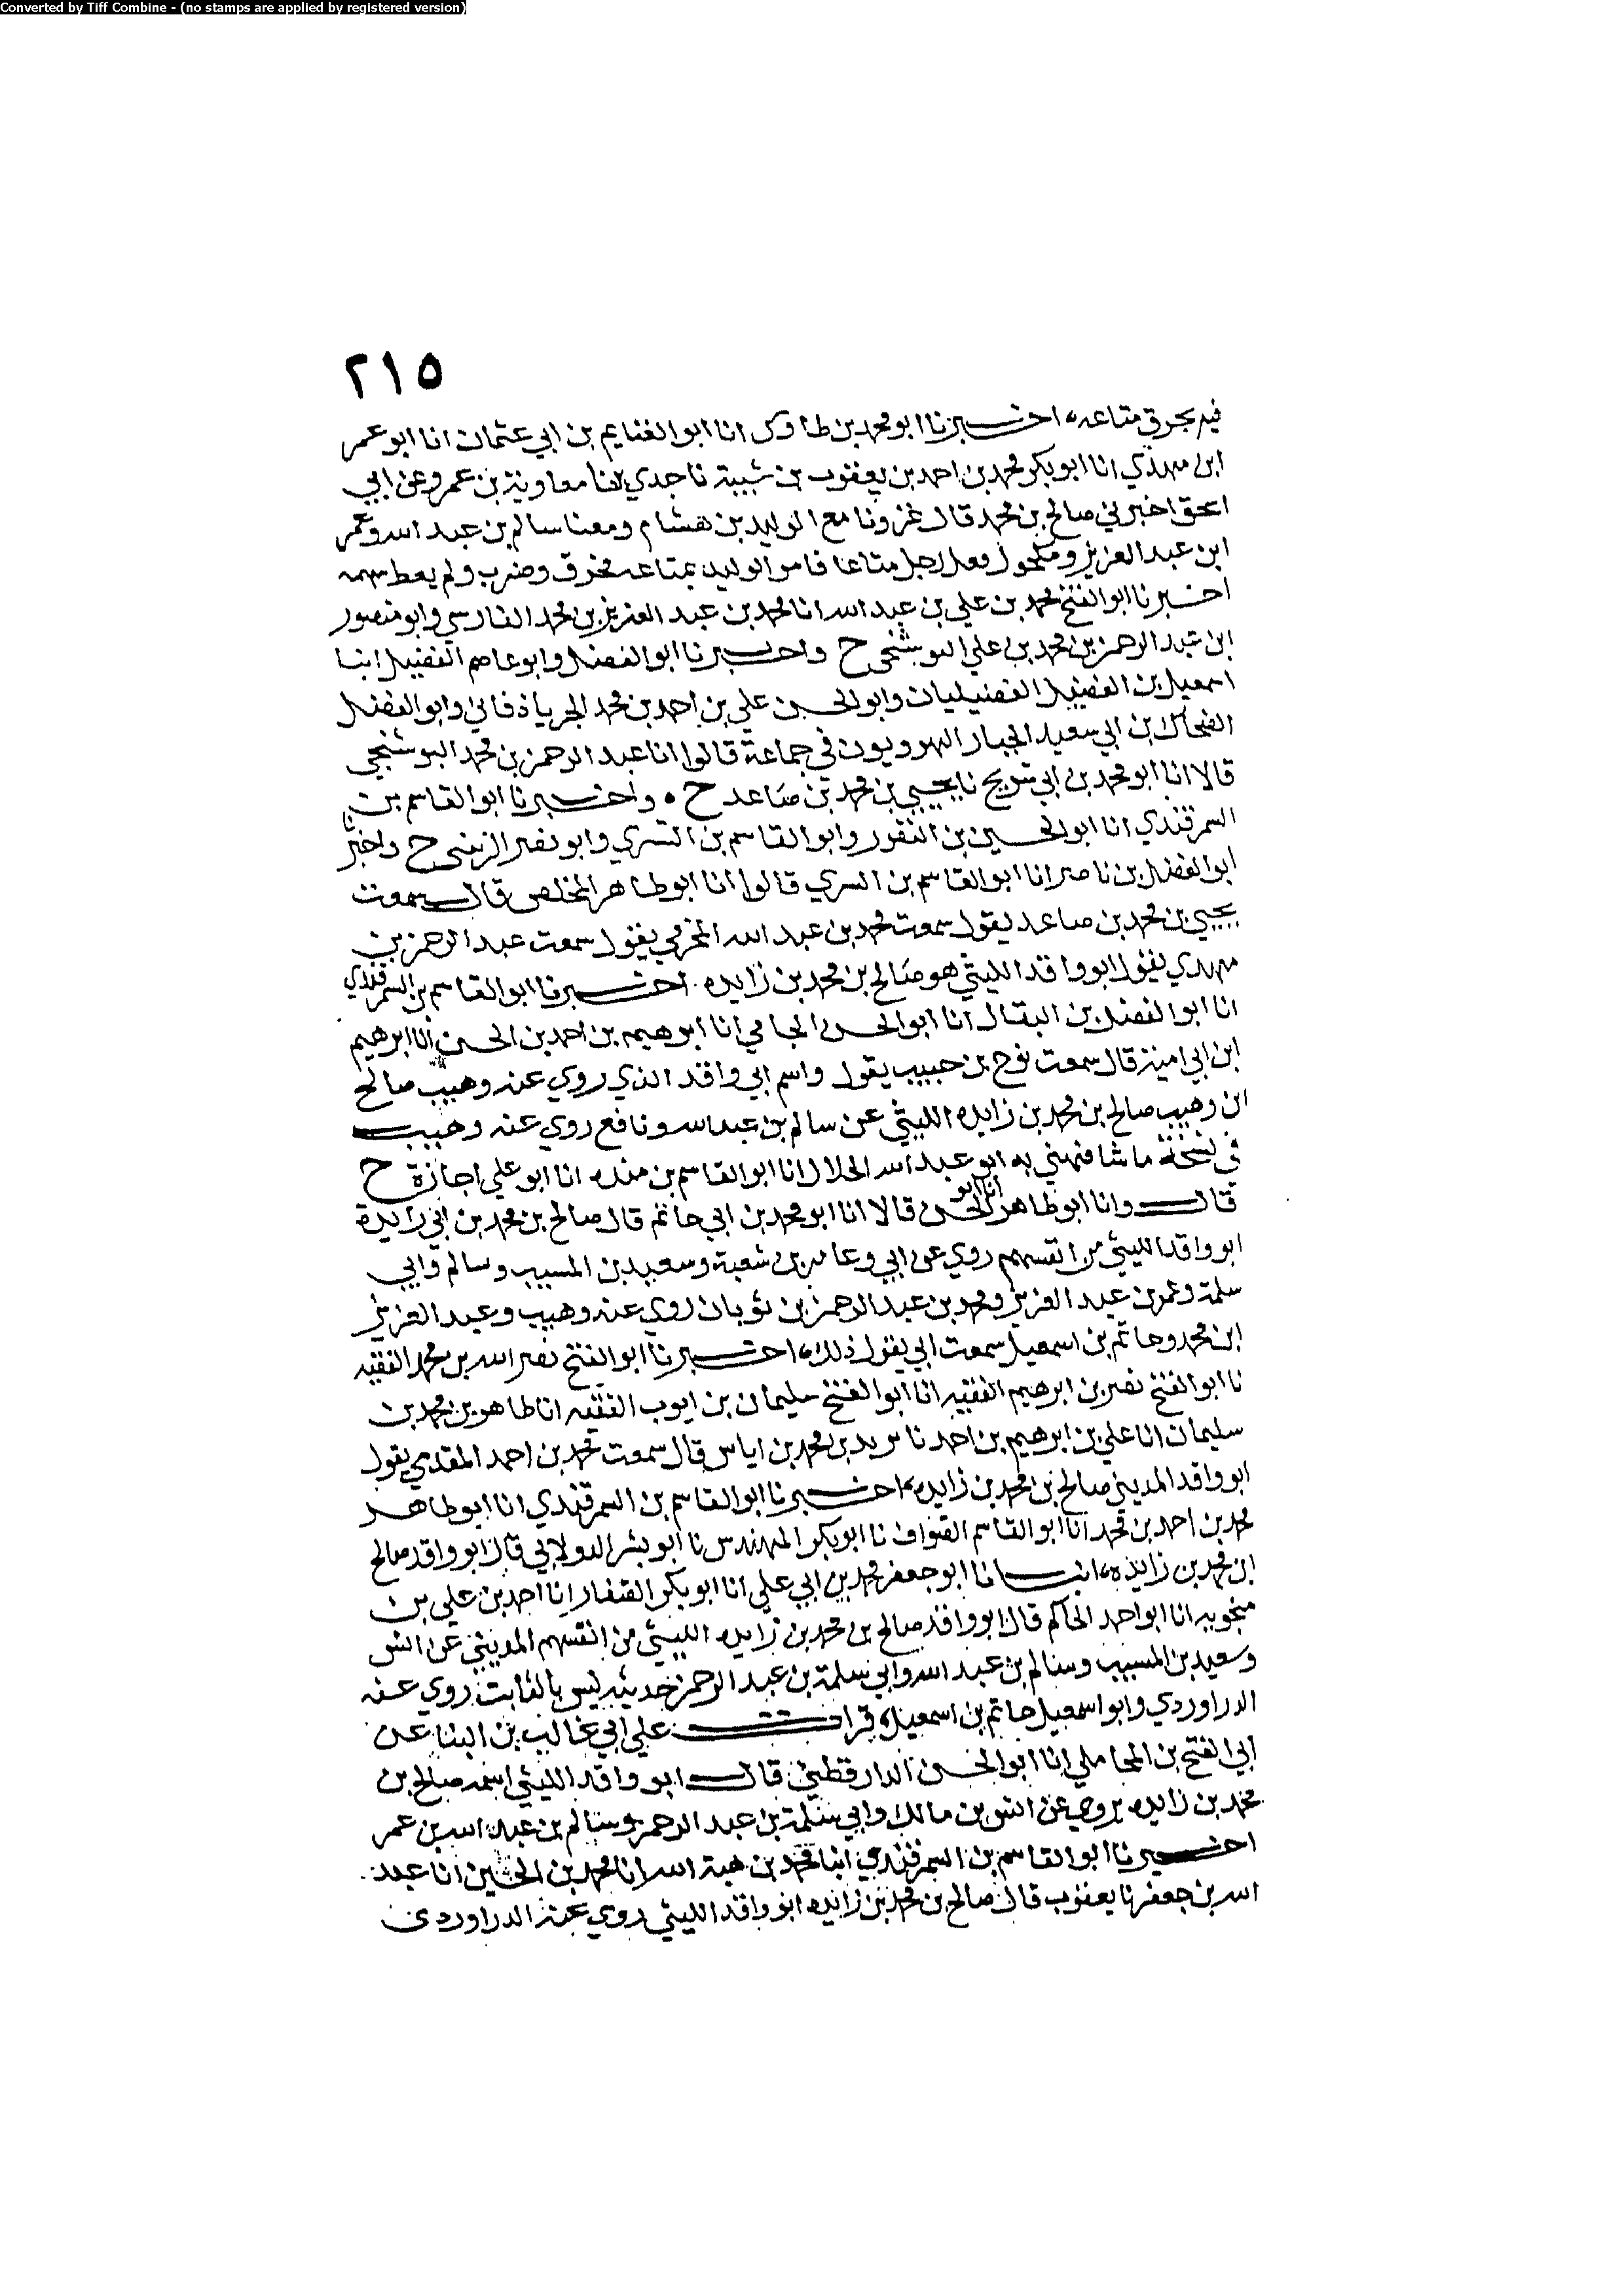 Converted by Tiff Combine - (no stamps are applied by registered version)
٢١٥
فيه يحرق متاعه، اخبرنا ابو محمد بن طاوس انا ابو الغنايم بن ابي عثمان انا ابو عمر
ابن مهدي انا ابو بكر محمد بن احمد بن يعقوب بن شيبة نا جدي نا معاوية بن عمرو عن ابي
اسحق اخبرني صالح بن محمد قال غزونا مع الوليد بن هشام ومعنا سالم بن عبد الله وعمر
ابن عبد العزيز ومكحول فغل رجل متاعا فامر الوليد بمتاعه فحرق وضرب ولم يعط سهمه
اخبرنا ابو الفتح محمد بن علي بن عبد الله انا محمد بن عبد العزيز بن محمد الفارسي وابو منصور
ابن عبد الرحمن بن محمد بن علي البوشنجي ح واخبرنا ابو الفضل وابو عاصم الفضيل ابنا
اسمعيل بن الفضيل الفضيليان وابو الحسن علي بن احمد بن محمد الجرياذقاني وابو الفضل
الضحاك بن ابي سعيد الجبار الهرويون في جماعة قالوا انا عبد الرحمن بن محمد البوشنجي
قالا انا ابو محمد بن ابي شريح نا يحيى بن محمد بن صاعد ح ٠ واخبرنا ابو القاسم بن
السمرقندي انا ابو الحسين بن النقور وابو القاسم بن البسري وابو نصر الزينبي ح واخبرنا
ابو الفضل بن ناصر انا ابو القاسم بن البسري قالوا انا ابو طاهر المخلص قال سمعت
يحيى بن محمد بن صاعد يقول سمعت محمد بن عبد الله المخرمي يقول سمعت عبد الرحمن بن
مهدي يقول ابو واقد الليثي هو صالح بن محمد بن زايده. اخبرنا ابو القاسم بن السمرقندي
انا ابو الفضل بن البقال انا ابو الحسن الحمامي انا ابرهيم بن احمد بن الحسن انا ابرهيم
ابن ابي امية قال سمعت نوح بن حبيب يقول واسم ابي واقد الذي روي عنه وهيب صالح
ابن وهيب صالح بن محمد بن زايده الليثي عن سالم بن عبد الله ونافع روي عنه وهيب
في نسخة ما شافهني به ابو عبد الله الخلال انا ابو القاسم بن منده انا ابو علي اجازة ح
قال وانا ابو طاهر انا ابو الحسن قالا انا ابو محمد بن ابي حاتم قال صالح بن محمد بن ابي زايدة
ابو واقد الليثي من انفسهم روي عن ابي وعامر بن شعبة وسعيد بن المسيب وسالم وابي
سلمة وعمر بن عبد العزيز ومحمد بن عبد الرحمن بن ثوبان روي عنه وهيب وعبد العزيز
ابن محمد وحاتم بن اسمعيل سمعت ابي يقول ذلك، اخبرنا ابو الفتح نصر الله بن محمد الفقيه
نا ابو الفتح نصر بن ابرهيم الفقيه انا ابو الفتح سليمان بن ايوب الفقيه انا طاهر بن محمد بن
سليمان انا علي بن ابرهيم بن احمد نا يزيد بن محمد بن اياس قال سمعت محمد بن احمد المقدمي يقول
ابو واقد المديني صالح بن محمد بن زايده، اخبرنا ابو القاسم بن السمرقندي انا ابو طاهر
محمد بن احمد بن محمد انا ابو القاسم الصواف نا ابو بكر المهندس نا ابو بشر الدولابي قال ابو واقد صالح
ابن محمد بن زايده، انبانا ابو جعفر محمد بن ابي علي انا ابو بكر الصفار انا احمد بن علي بن
منجويه انا ابو احمد الحاكم قال ابو واقد صالح بن محمد بن زايده الليثي من انفسهم المديني عن انس
وسعيد بن المسيب وسالم بن عبد الله وابي سلمة بن عبد الرحمن حديثه ليس بالثابت روي عنه
الدراوردي وابو اسمعيل حاتم بن اسمعيل، قرات علي ابي غالب بن البنا عن
ابي الفتح بن المحاملي انا ابو الحسن الدارقطني قال ابو واقد الليثي اسمه صالح بن
محمد بن زايده يروي عن انس بن مالك وابي سلمة بن عبد الرحمن وسالم بن عبد الله بن عمر
اخبرنا ابو القاسم بن السمرقندي انبا محمد بن هبة الله انا محمد بن الحسين انا عبد
الله بن جعفر نا يعقوب قال صالح بن محمد بن زايده ابو واقد الليثي روي عنه الدراوردي